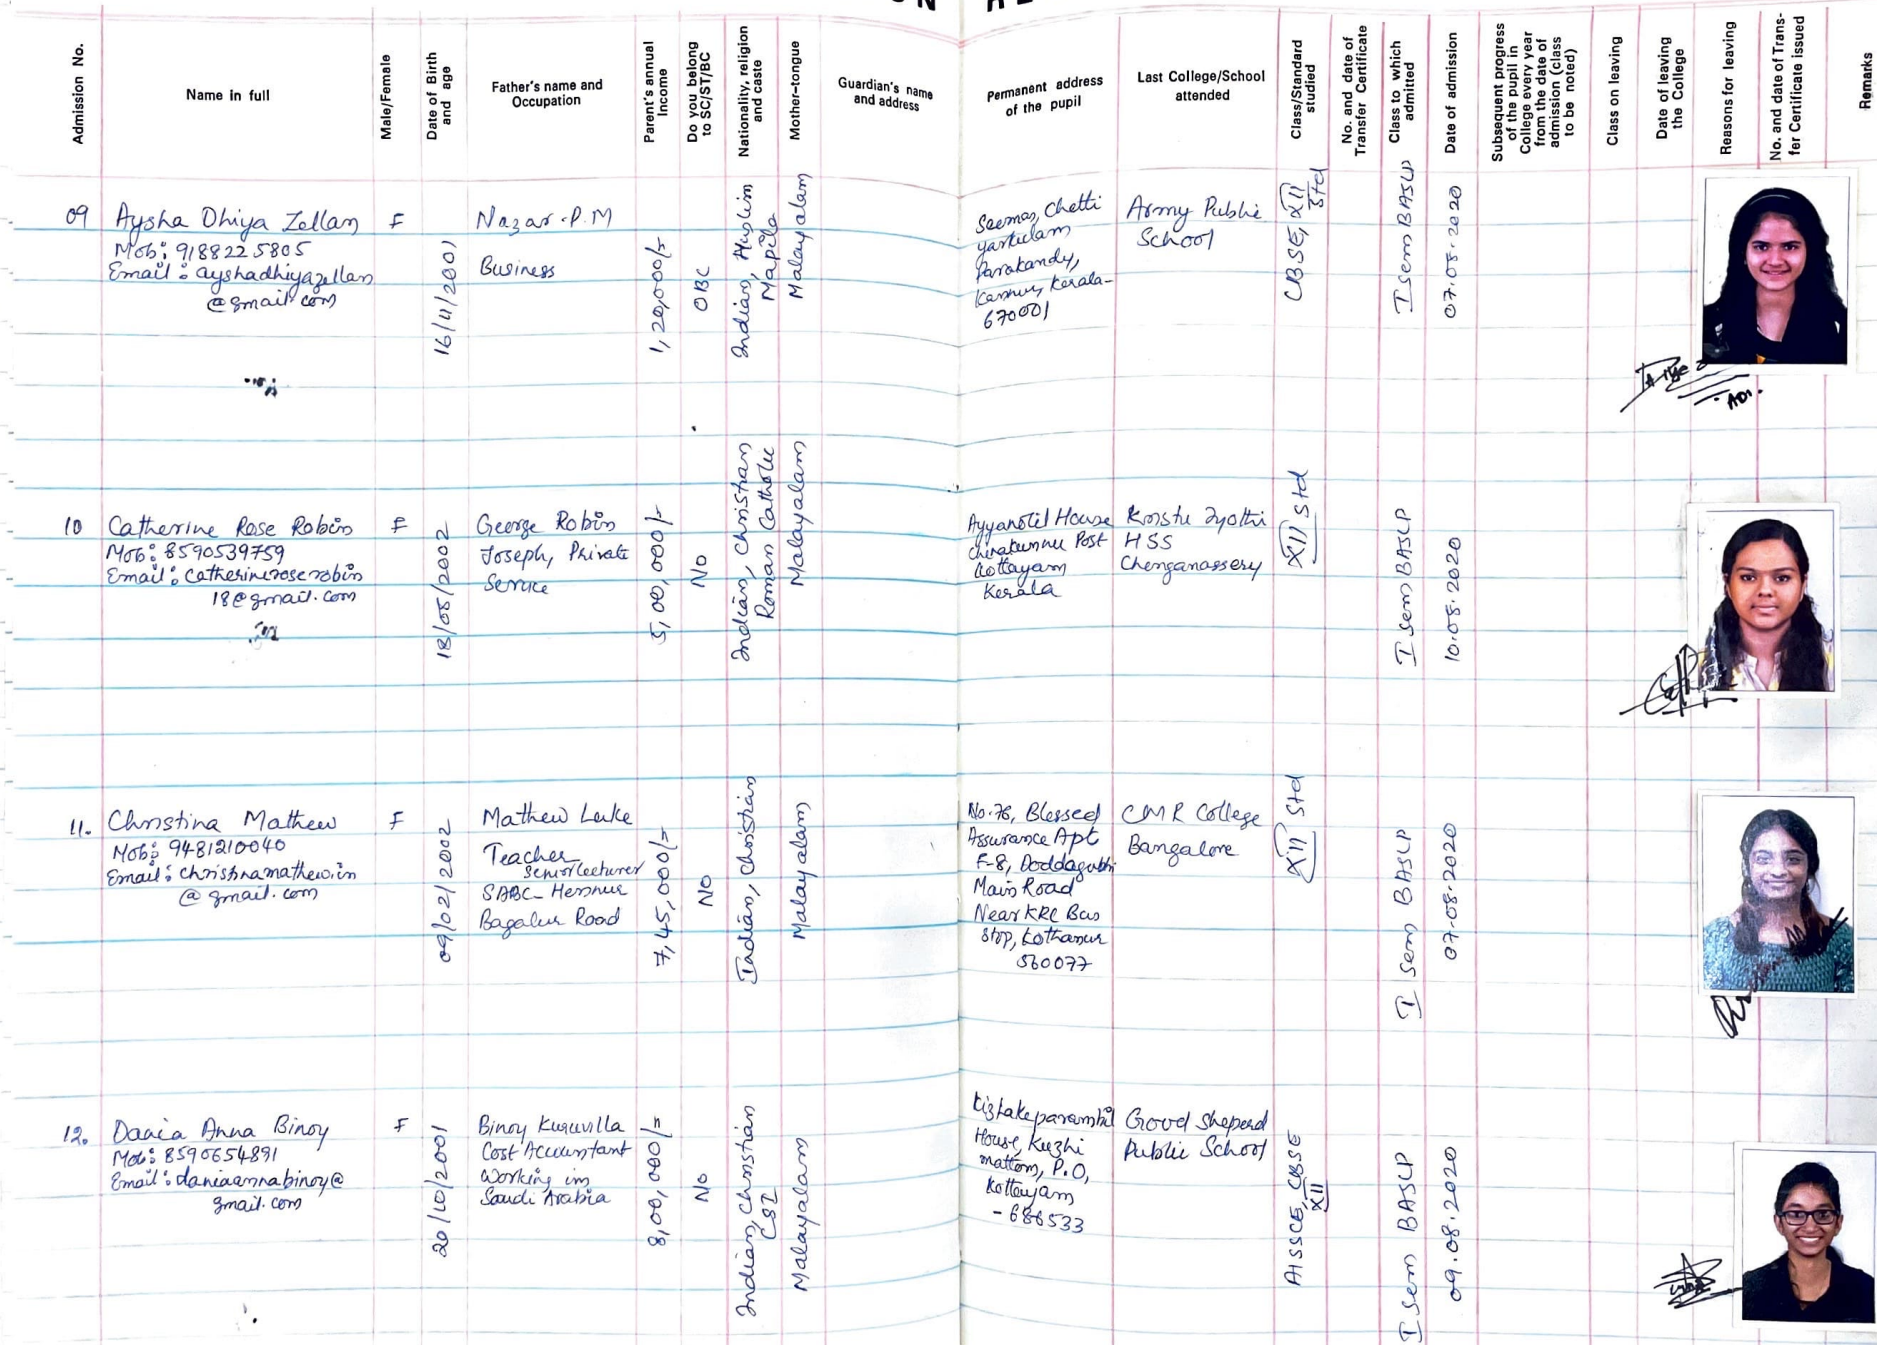 Admission No.
Name in full
Male/Female
Date of Birth
and age
Father's name and
Occupation
Parent's annual
Income
Do you belong
to SC/ST/BC
Nationality, religion
and caste
Mother-tongue
Guardian's name
and address
Permanent address
of the pupil
Last College/School
attended
Class/Standard
studied
No. and date of
Transfer Certificate
Class to which
admitted
Date of admission
Subsequent progress
of the pupil in
College every year
from the date of
admission (class
to be noted)
Class on leaving
Date of leaving
the College
Reasons for leaving
No. and date of Trans-
fer Certificate issued
Remarks
09
Aysha Dhiya Zellam
Mob: 9188225805
Email: ayshadhiyazellam
@gmail.com
F
16/11/2001
Nazar.P.M
Business
1,20,000/-
OBC
Indian, Muslim
Mapila
Malayalam
Chetti
Kerala-
670001
Army Public
School
CBSE, XII
Std
I sem BASLP
07.08.2020
10
Catherine Rose Robin
Mob: 8590539759
Email: catherineroserobin
18@gmail.com
F
18/08/2002
George Robin
Joseph, Private
Service
5,00,000/-
No
Indian, Christian
Roman Catholic
Malayalam
House
Post
Kottayam
Kerala
Kristu Jyothi
HSS
Chenganassery
XII Std
I sem BASLP
10.08.2020
11.
Christina Mathew
Mob: 9481210040
Email: christinamathew.in
@gmail.com
F
09/02/2002
Mathew Luke
Teacher
Senior lecturer
SABC- Hennur
Bagalur Road
7,45,000/-
NO
Indian, Christian
Malayalam
No.76, Blessed
Assurance Apt
F-8, Doddagubbi
Main Road
Near KRC Bus
Stop, Kothanur
560077
CMR College
Bangalore
XII Std
I sem BASLP
07-08-2020
12.
Dania Anna Binoy
Mob: 8590654891
Email: daniaannabinoy@
gmail.com
F
20/10/2001
Binoy Kuruvilla
Cost Accountant
Working in
Saudi Arabia
8,00,000/-
No
Indian, Christian
CSI
Malayalam
Kizhakeparambil
House, Kuzhi
mattom, P.O,
Kottayam
- 686533
Good Sheperd
Public School
AISSCE, CBSE
XII
I sem BASLP
09.08.2020